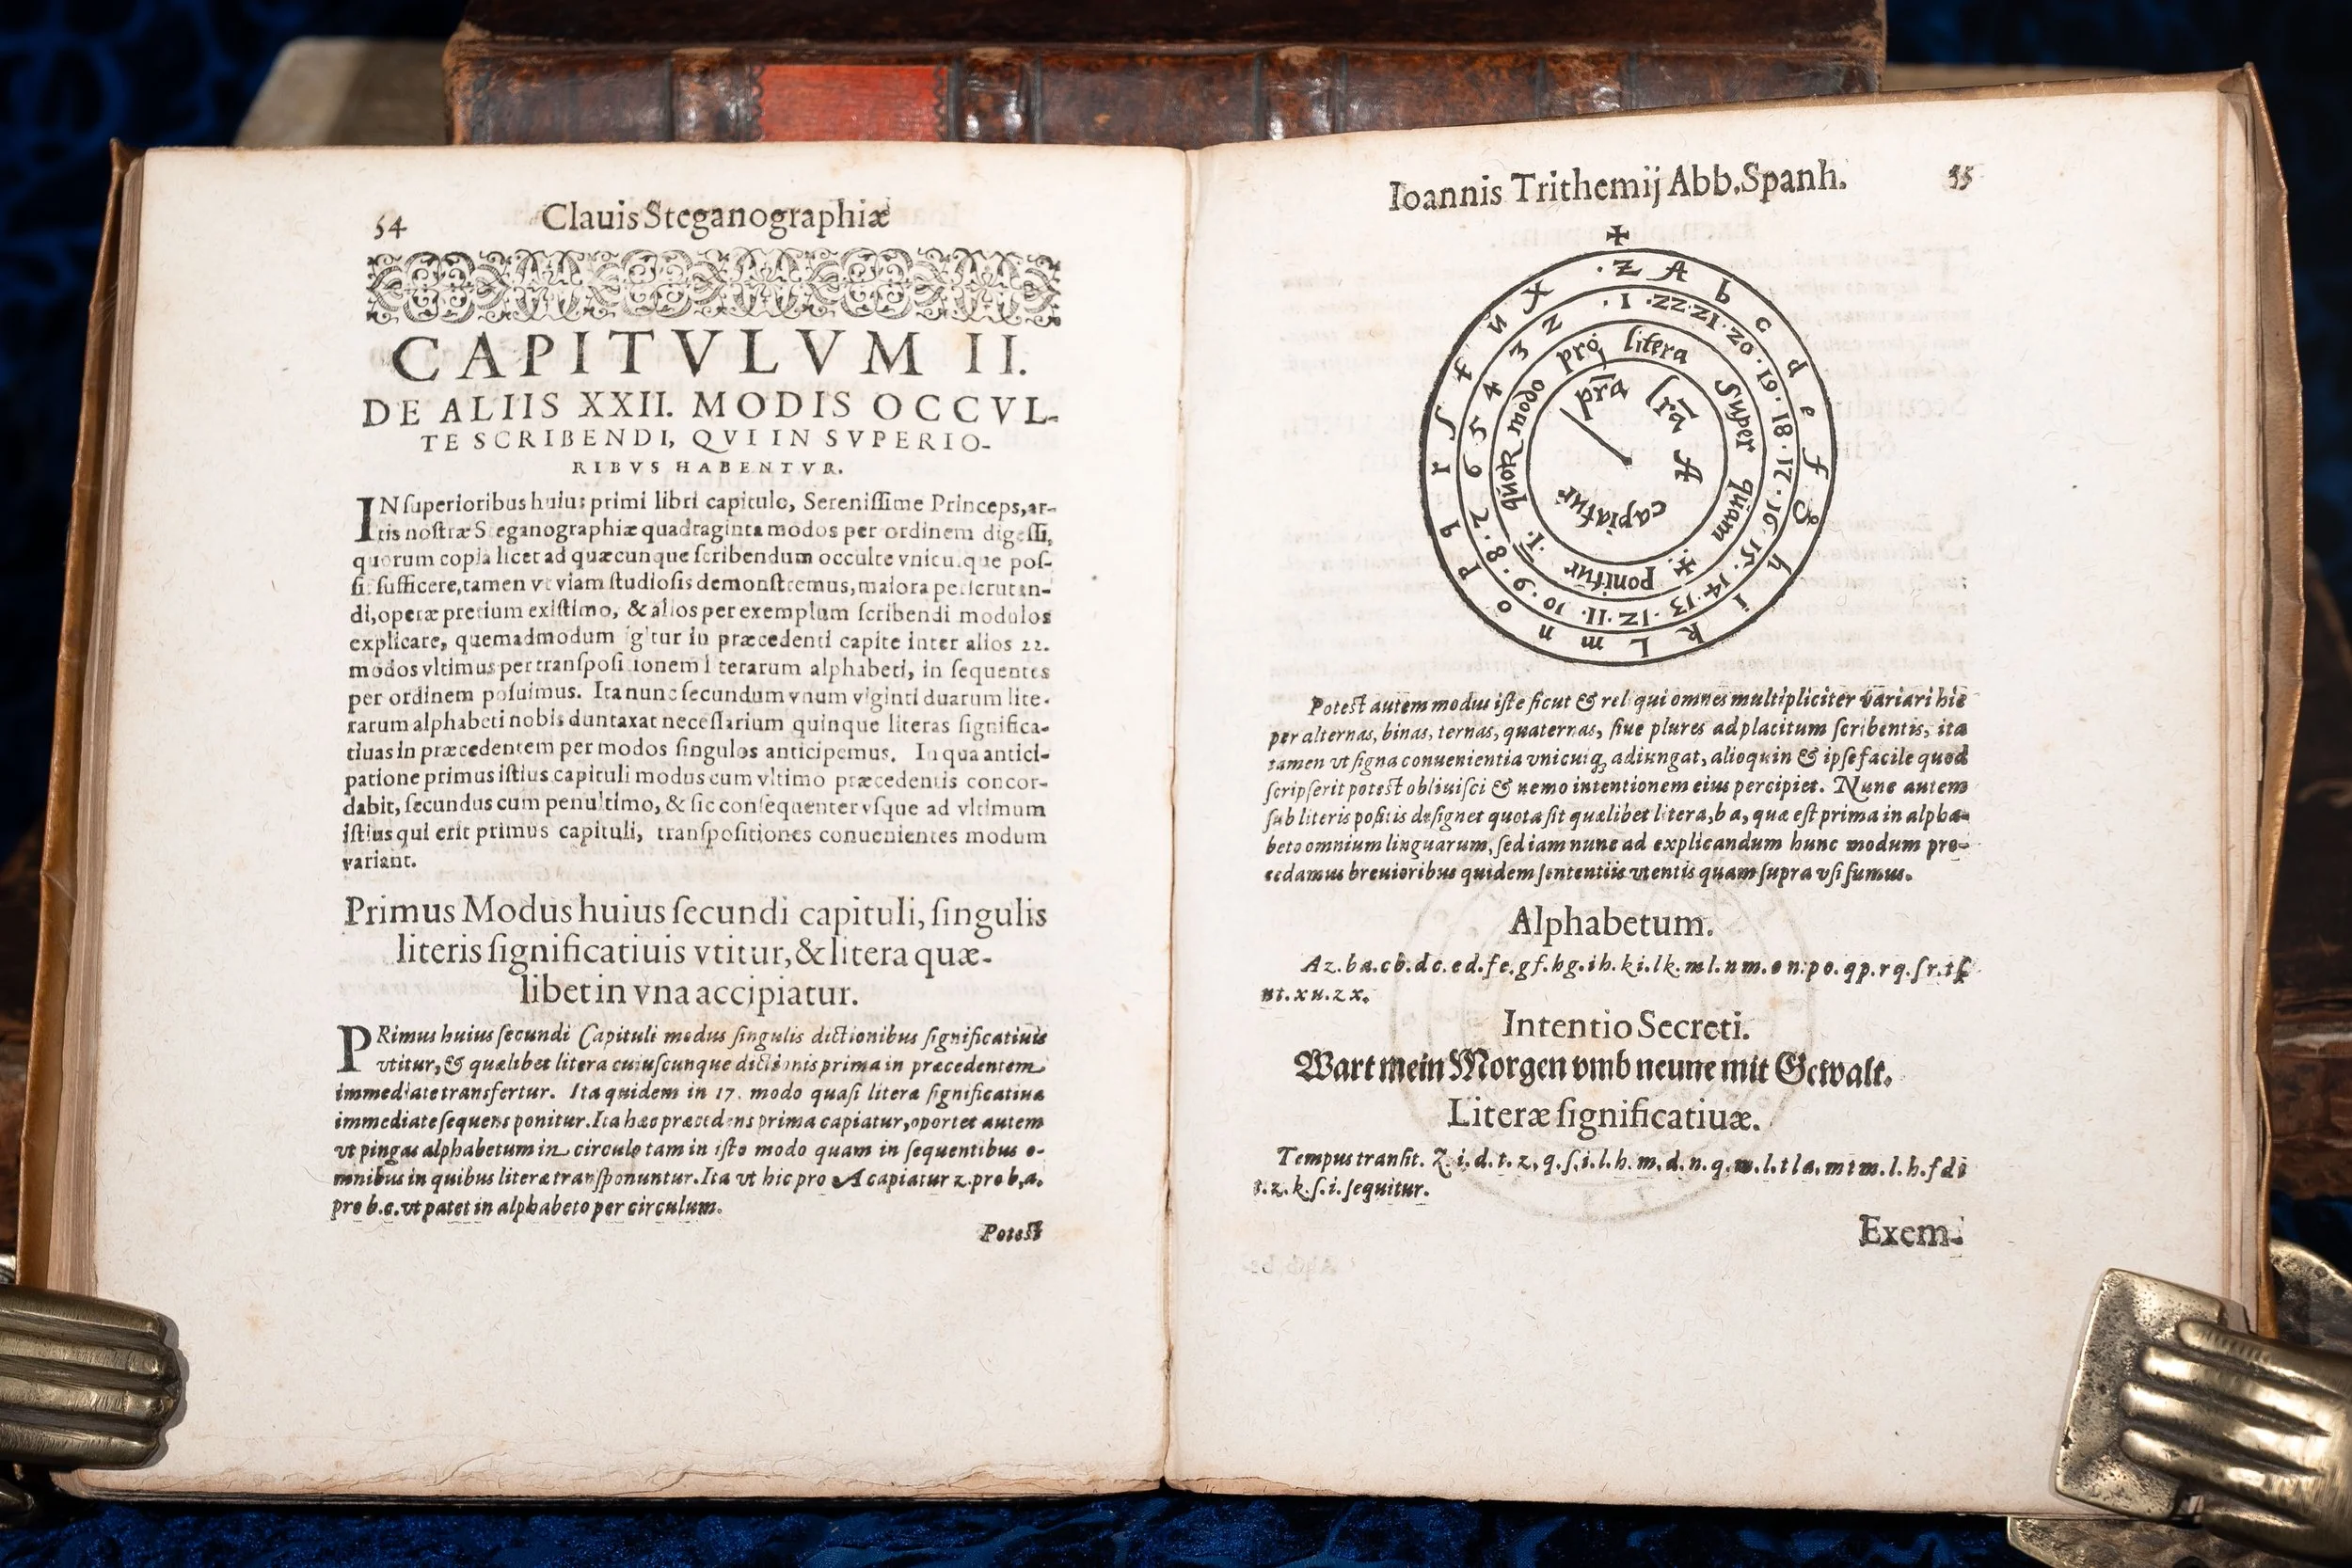 54
Clauis Steganographiæ
CAPITVLVM II.
DE ALIIS XXII. MODIS OCCVL-
TE SCRIBENDI, QVI IN SVPERIO-
RIBVS HABENTVR.
IN ſuperioribus huius primi libri capitulo, Sereniſſime Princeps, ar-
tis noſtræ Steganographiæ quadraginta modos per ordinem digeſſi,
quorum copia licet ad quæcunque ſcribendum occulte vnicuique poſ-
ſit ſufficere, tamen vt viam ſtudioſis demonſtremus, maiora perſcrutan-
di, operæ pretium exiſtimo, & alios per exemplum ſcribendi modulos
explicare, quemadmodum igitur in præcedenti capite inter alios 22.
modos vltimus per tranſpoſitionem literarum alphabeti, in ſequentes
per ordinem poſuimus. Ita nunc ſecundum vnum viginti duarum lite-
rarum alphabeti nobis duntaxat neceſſarium quinque literas ſignifica-
tiuas in præcedentem per modos ſingulos anticipemus. In qua antici-
patione primus iſtius capituli modus cum vltimo præcedentis concor-
dabit, ſecundus cum penultimo, & ſic conſequenter vſque ad vltimum
iſtius qui erit primus capituli, tranſpoſitiones conuenientes modum
variant.
Primus Modus huius ſecundi capituli, ſingulis
literis ſignificatiuis vtitur, & litera quæ-
libet in vna accipiatur.
PRimus huius ſecundi Capituli modus ſingulis dictionibus ſignificatiuis
vtitur, & quælibet litera cuiuſcunque dictionis prima in præcedentem
immediate transfertur. Ita quidem in 17. modo quaſi litera ſignificatiua
immediate ſequens ponitur. Ita hæc præcedens prima capiatur, oportet autem
vt pingas alphabetum in circulo tam in iſto modo quam in ſequentibus o-
mnibus in quibus literæ tranſponuntur. Ita vt hic pro A capiatur z. pro b, a.
pro b.c. vt patet in alphabeto per circulum.
Poteſt
Ioannis Trithemij Abb. Spanh.
55
✠
. Z A b c d e f g h i k L m n o p q r ſ t u X
. 1 . 22 . 21 . 20 . 19 . 18 . 17 . 16 . 15 . 14 . 13 . 12 . 11 . 10 . 9 . 8 . 7 6 5 4 3 2
pro litera super quam ✠ ponitur . I . quor modo
pra ra A capiatur
Poteſt autem modus iſte ſicut & reliqui omnes multipliciter variari hic
per alternas, binas, ternas, quaternas, ſiue plures ad placitum ſcribentis, ita
tamen vt ſigna conuenientia vnicuiq; adiungat, alioquin & ipſe facile quod
ſcripſerit poteſt obliuiſci & nemo intentionem eius percipiet. Nunc autem
ſub literis poſitis deſignet quota ſit quælibet litera, b a, quæ eſt prima in alpha-
beto omnium linguarum, ſed iam nunc ad explicandum hunc modum pro-
cedamus breuioribus quidem ſententiis vtentis quam ſupra vſi ſumus.
Alphabetum.
Az. ba. cb. dc. ed. fe. gf. hg. ih. ki. lk. ml. nm. on. po. qp. rq. ſr. tſ
ut. xu. zx.
Intentio Secreti.
Wart mein Morgen vmb neune mit Gewalt.
Literæ ſignificatiuæ.
Tempus tranſit. Z. i. d. t. z, q. ſ, i. l. h. m, d. n. q. m. l. t l a, m t m. l. h. f d i
ſ. z. k. ſ. i. ſequitur.
Exem-